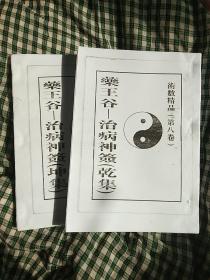 術數精品(第八卷)
藥王谷—治病神簽(乾集)
藥王谷—治病神簽(坤集)